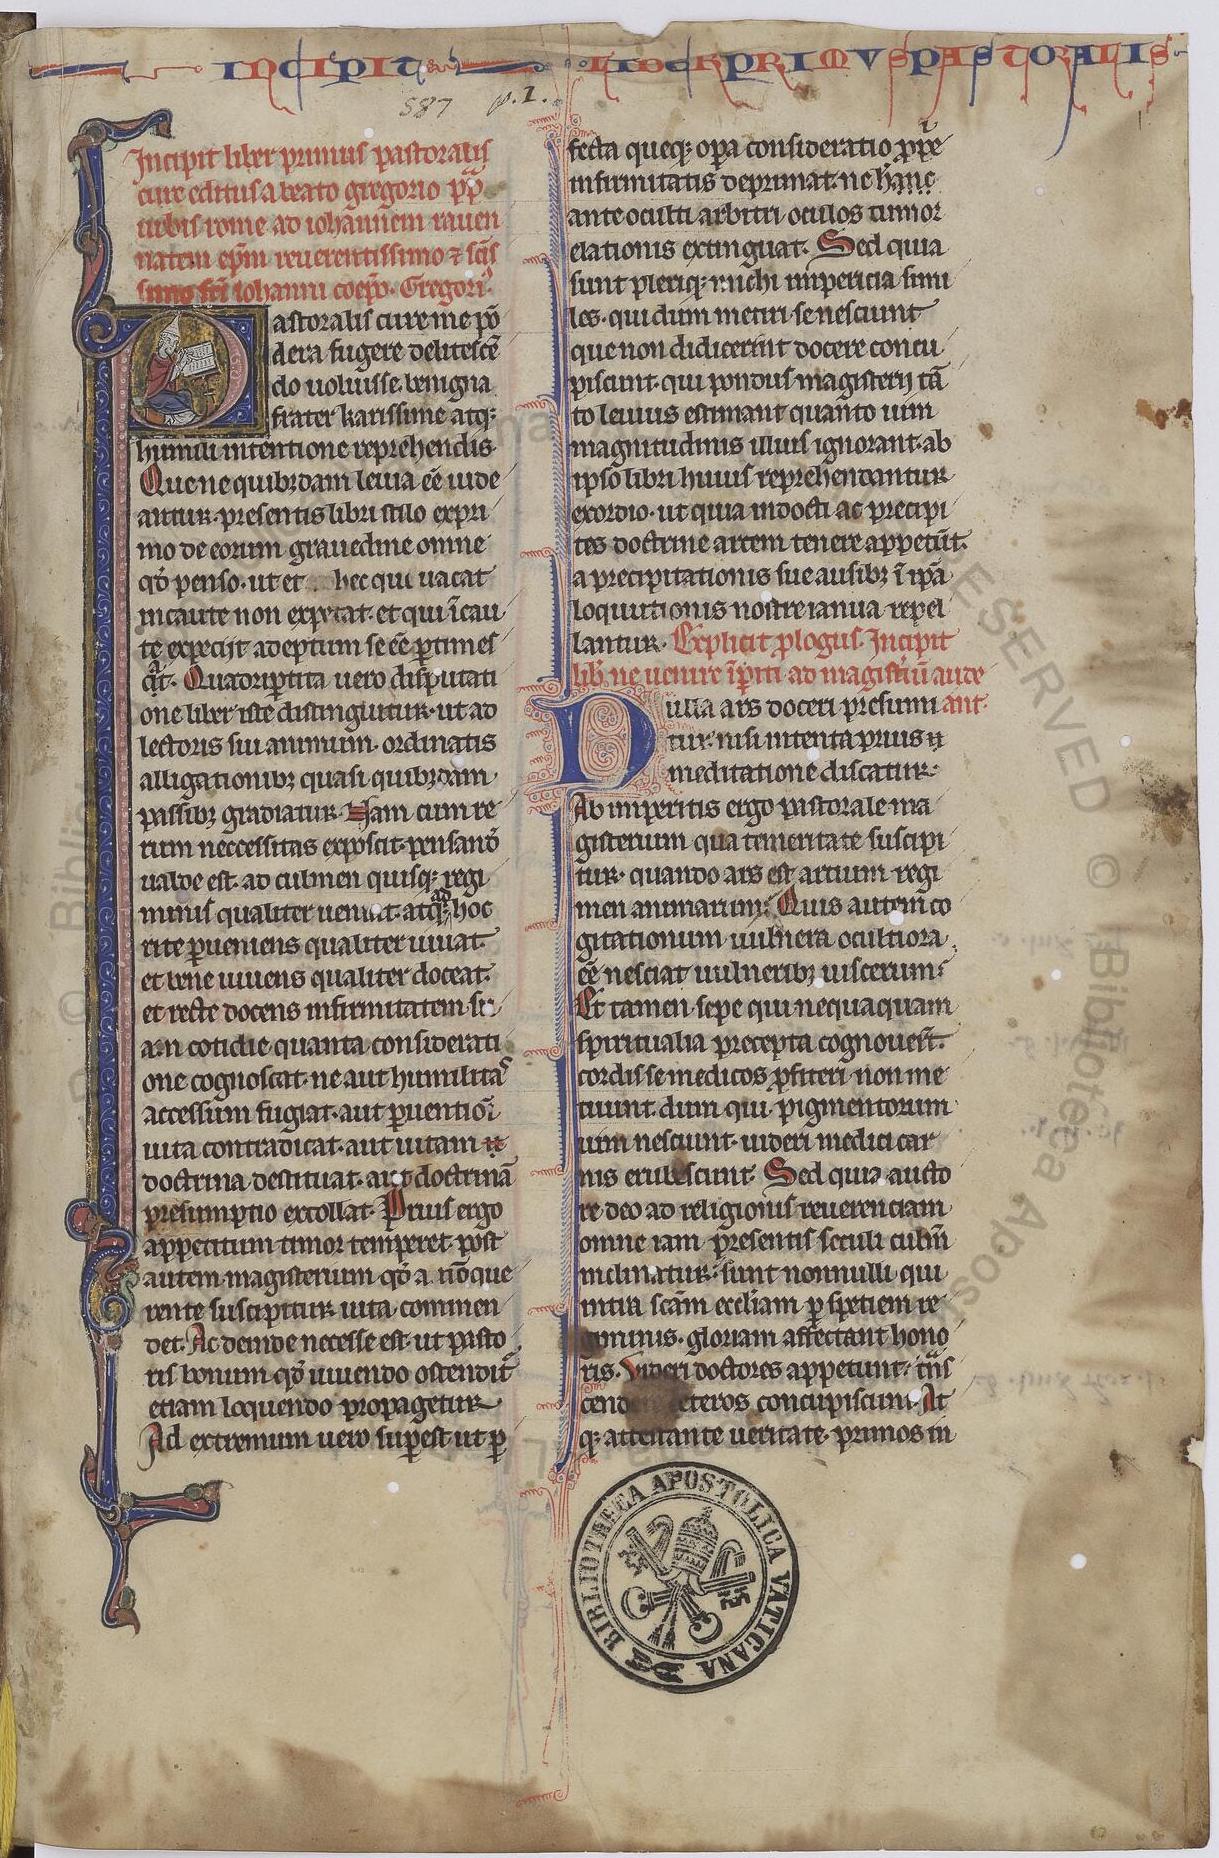 INCIPIT LIBER PRIMUS PASTORALIS
587 p.1.
Incipit liber primus pastoralis
cure editus a beato gregorio pp̄
urbis rome ad iohannem raven
natem ep̄m reuerentissimo ⁊ scīs
simo fr̄i iohanni coep̄o. Gregoriꝰ
Pastoralis cure me pō
dera fugere delitescē
do uoluisse. benigna
frater karissime atq;
humili intentione reprehendis.
Que ne quibꝫdam leuia eē uide
antur. presentis libri stilo expri
mo de eorum grauedine omne
qđ penso. ut et hec qui uacat
incaute non expetat. et qui īcau
te expeciit adeptum se eē ꝑtimes
cāt. Quadriꝑtita uero disputati
one liber iste distinguitur. ut ad
lectoris sui animum. ordinatis
alligationibꝫ quasi quibꝫdam
passibꝫ gradiatur. Nam cum re
rum neccessitas exposcit. pensandō
ualde est. ad culmen quisq; regi
minis qualiter ueniat. atq; ad hoc
rite ꝑueniens qualiter uiuat.
et bene uiuens qualiter doceat.
et recte docens infirmitatem su
am cotidie quanta considerati
one cognoscat. ne aut humilitas
accessum fugiat. aut ꝑuentioī
uita contradicat. aut uitam
doctrina destituat. aut doctrinā
presumptio extollat. Prius ergo
appetitum timor temperet. post
autem magisterium qđ a nō que
rente suscipitur. uita commen
det. Ac deinde necesse est. ut pasto
ris bonum qđ uiuendo ostenditr̄
etiam loquendo propagetur
Ad extremum uero suꝑest ut ꝑ
fecta queq; oꝑa consideratio ꝓpͥe
infirmitatis deprimat. ne hanc
ante oculti arbitri oculos tumor
elationis extinguat. Sed quia
sunt pleriq; michi impericia simi
les. qui dum metiri se nesciunt
que non didicerint docere concu
piscunt. qui pondus magisterij tā
to leuius estimant quanto uim
magnitudinis illius ignorant. ab
ipso libri huius reprehendantur
exordio. ut quia indocti ac precipi
tes doctrine arcem tenere appetūt.
a precipitationis sue ausibꝫ ī ipā
loquutionis nostre ianua repel
lantur. Explicit ꝓlogus. Incipit
lib̄. ne uenire īꝑiti ad magist̄iū aude
Nulla ars doceri presumi ant.
tur. nisi intenta prius
meditatione discatur.
Ab imperitis ergo pastorale ma
gisterium qua temeritate suscipi
tur. quando ars est artium regi
men animarum. Quis autem co
gitationum uulnera occultiora
eē nesciat uulneribꝫ uiscerum.
Et tamen sepe qui nequaquam
spiritualia precepta cognouer̄t.
cordis se medicos ꝓfiteri non me
tuunt. dum qui pigmentorum
uim nesciunt. uideri medici car
nis erubescunt. Sed quia aucto
re deo ad religionis reuerenciam
omne iam presentis seculi culm̄
inclinatur. sunt nonnulli qui
intra scām eccl̄iam ꝑ speciem re
giminis. gloriam affectant hono
ris. Videri doctores appetunt. tn̄s
cendere ceteros concupiscunt. At
q; attestante ueritate. primos in
BIBLIOTHECA APOSTOLICA VATICANA